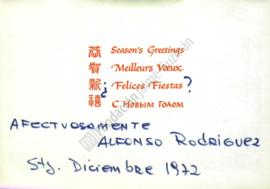 恭賀新禧
Season's Greetings
Meilleurs Vœux
¿Felices Fiestas?
С Новым Годом
AFECTUOSAMENTE
ALFONSO RODRIGUEZ
Stg. Diciembre 1972